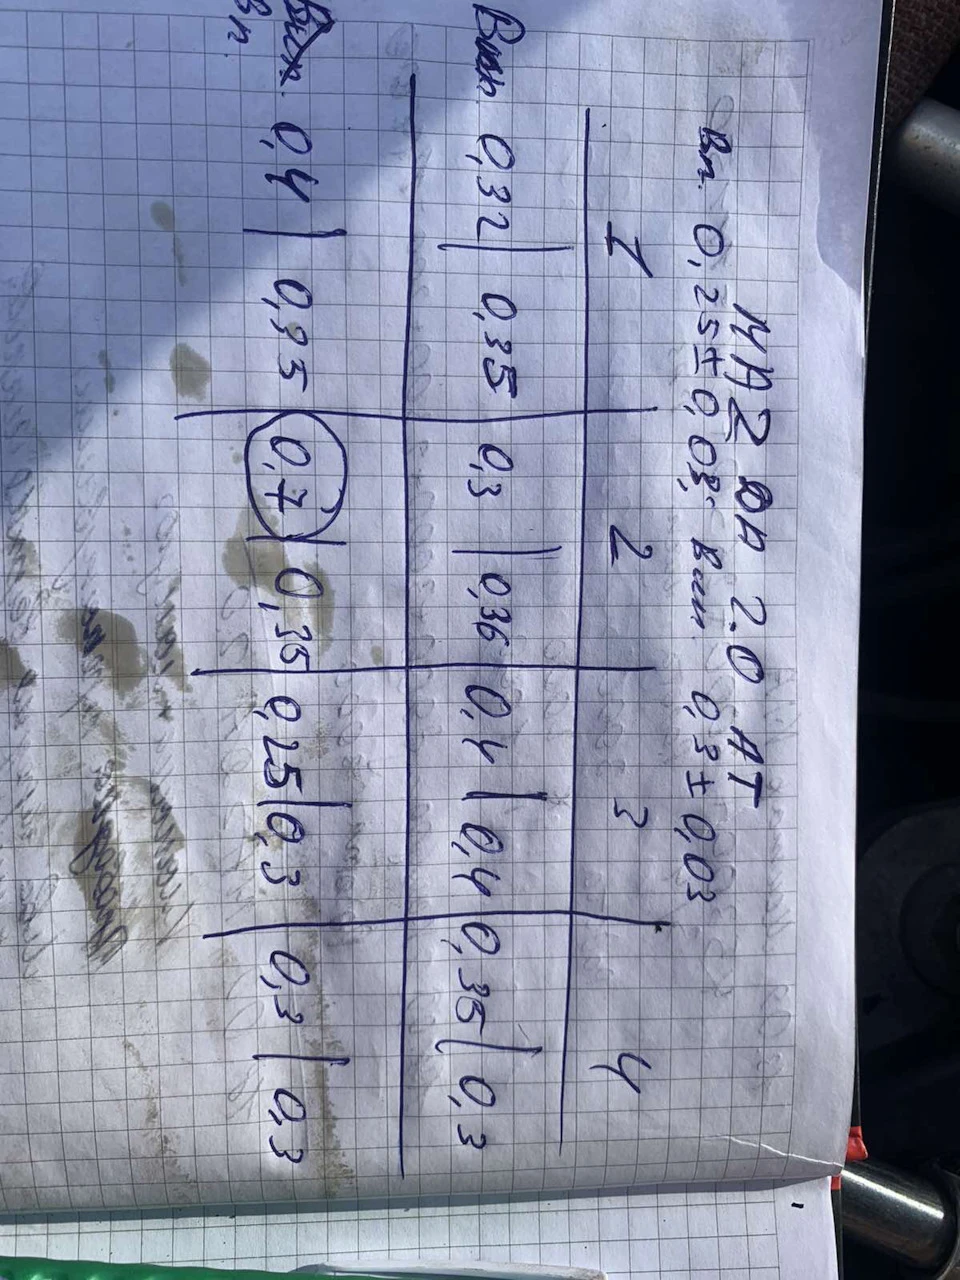 МАZ ДА 2.0 АТ
Вп. 0,25±0,03; Вып. 0,3±0,03
1 2 3 4
Вып. 0,32 | 0,35 0,3 | 0,36 0,4 | 0,4 0,35 | 0,3
0,4 | 0,35 0,7 | 0,35 0,25 | 0,3 0,3 | 0,3
Вп.